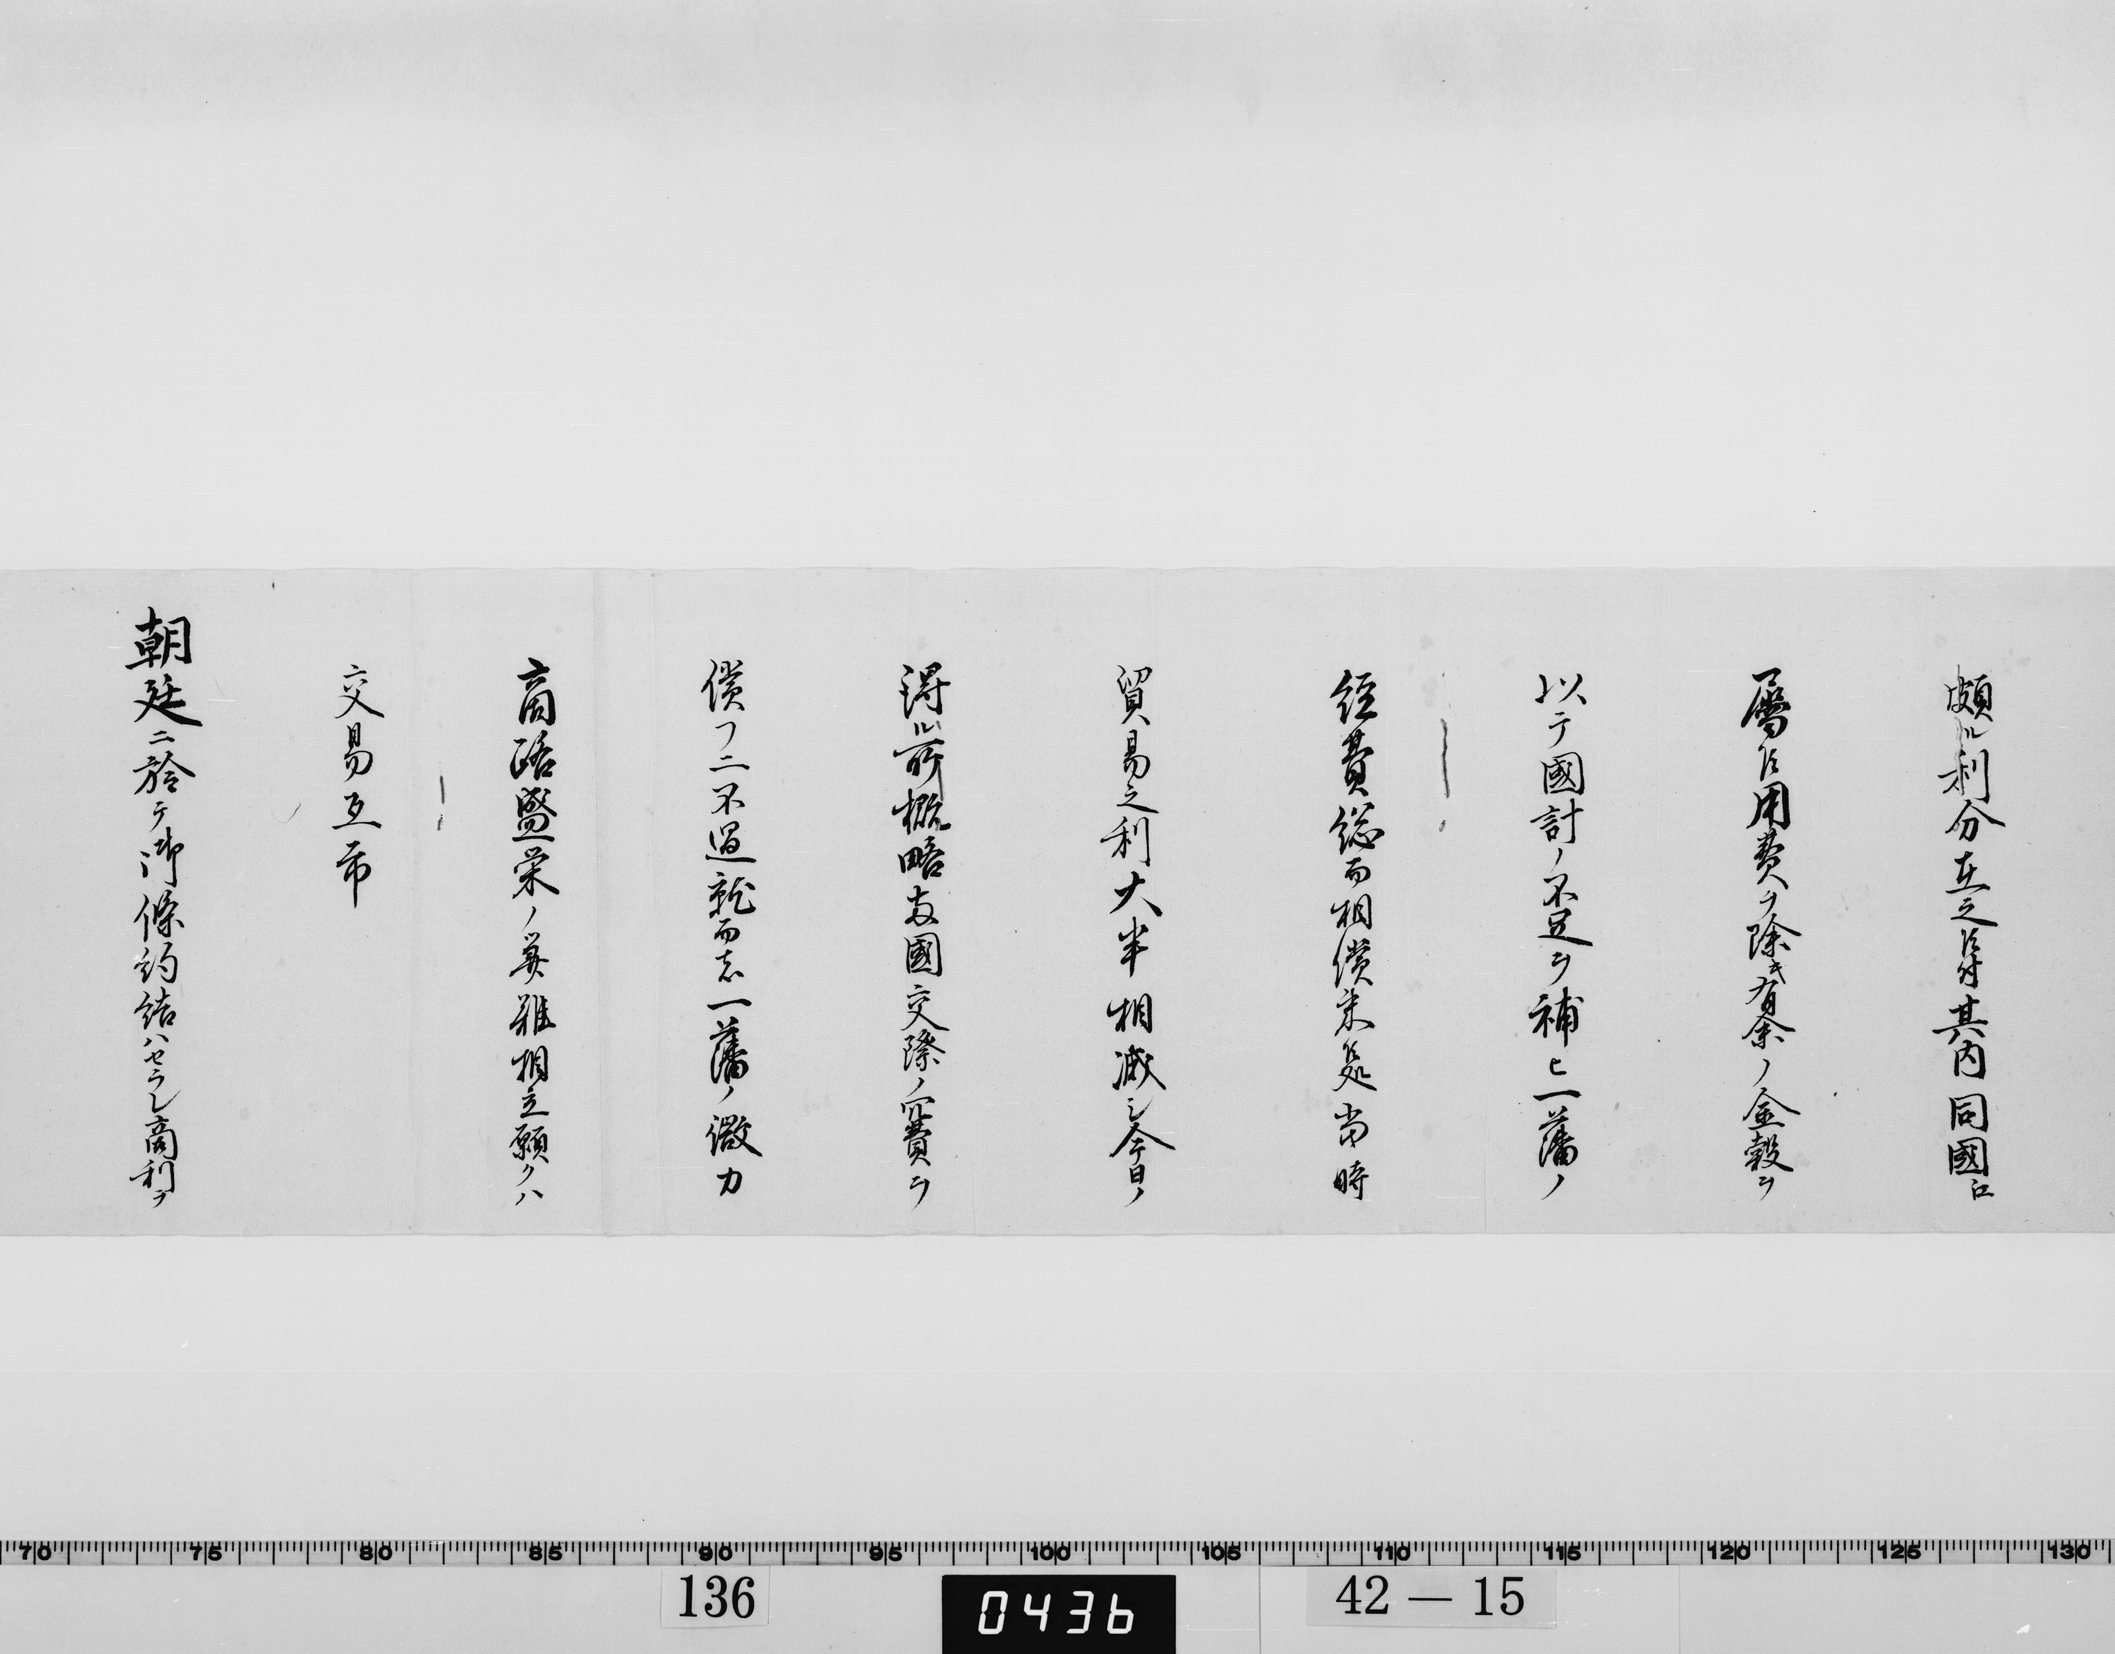 頗ル利分在之候付其内同國江
屬候用費ヲ除キ有余ノ金穀ヲ
以テ國計ノ不足ヲ補ヒ一藩ノ
経費総而相償来候処當時
貿易之利大半相減シ今日ノ
得ル所概略両國交際ノ冗費ヲ
償フニ不過就而者一藩ノ微力
商路盛栄ノ算難相立願クハ
交易互市
朝廷ニ於テ御條約結ハセラレ商利ヲ
70 75 80 85 90 95 100 105 110 115 120 125 130
136
0436
42－15